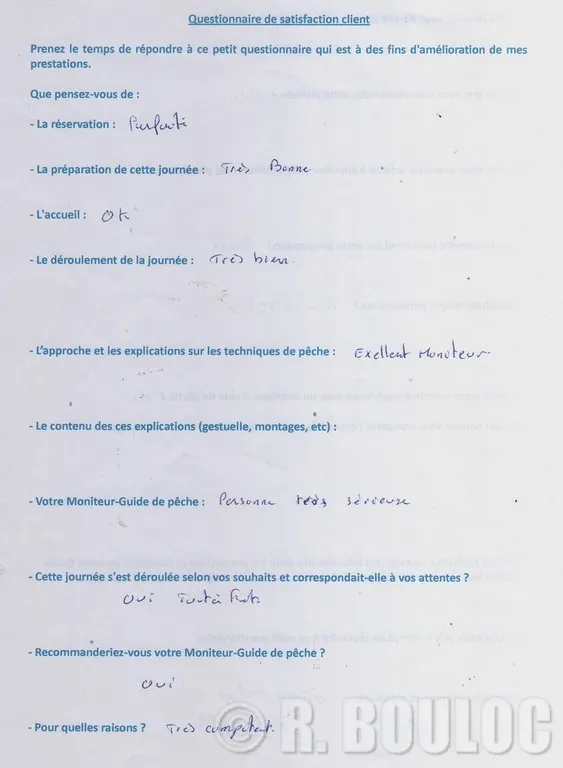 Questionnaire de satisfaction client
Prenez le temps de répondre à ce petit questionnaire qui est à des fins d'amélioration de mes
prestations.
Que pensez-vous de :
- La réservation : Parfaite
- La préparation de cette journée : Très Bonne
- L'accueil : OK
- Le déroulement de la journée : Très bien.
- L'approche et les explications sur les techniques de pêche : Exellent Moniteur
- Le contenu des ces explications (gestuelle, montages, etc) :
- Votre Moniteur-Guide de pêche : Personne très sérieuse
- Cette journée s'est déroulée selon vos souhaits et correspondait-elle à vos attentes ?
oui
- Recommanderiez-vous votre Moniteur-Guide de pêche ?
oui
- Pour quelles raisons ? Très compétent.
© R. BOULOC